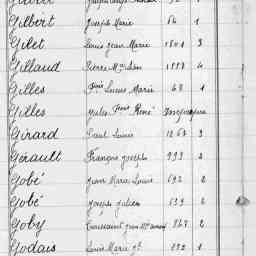 Gilbert Joseph Marie 54 1
Gilet Louis Jean Marie 1801 3
Gillaud Pierre M. 1888 4
Gilles Louis Marie 68 1
Gilles Jules René
Girard Paul Louis 1267 3
Gérault François Joseph 993 2
Gobé Jean Marie Louis 692 2
Gobé Joseph Julien 639 2
Goby Toussaint Jean 867 2
Godais Louis Marie 892 1